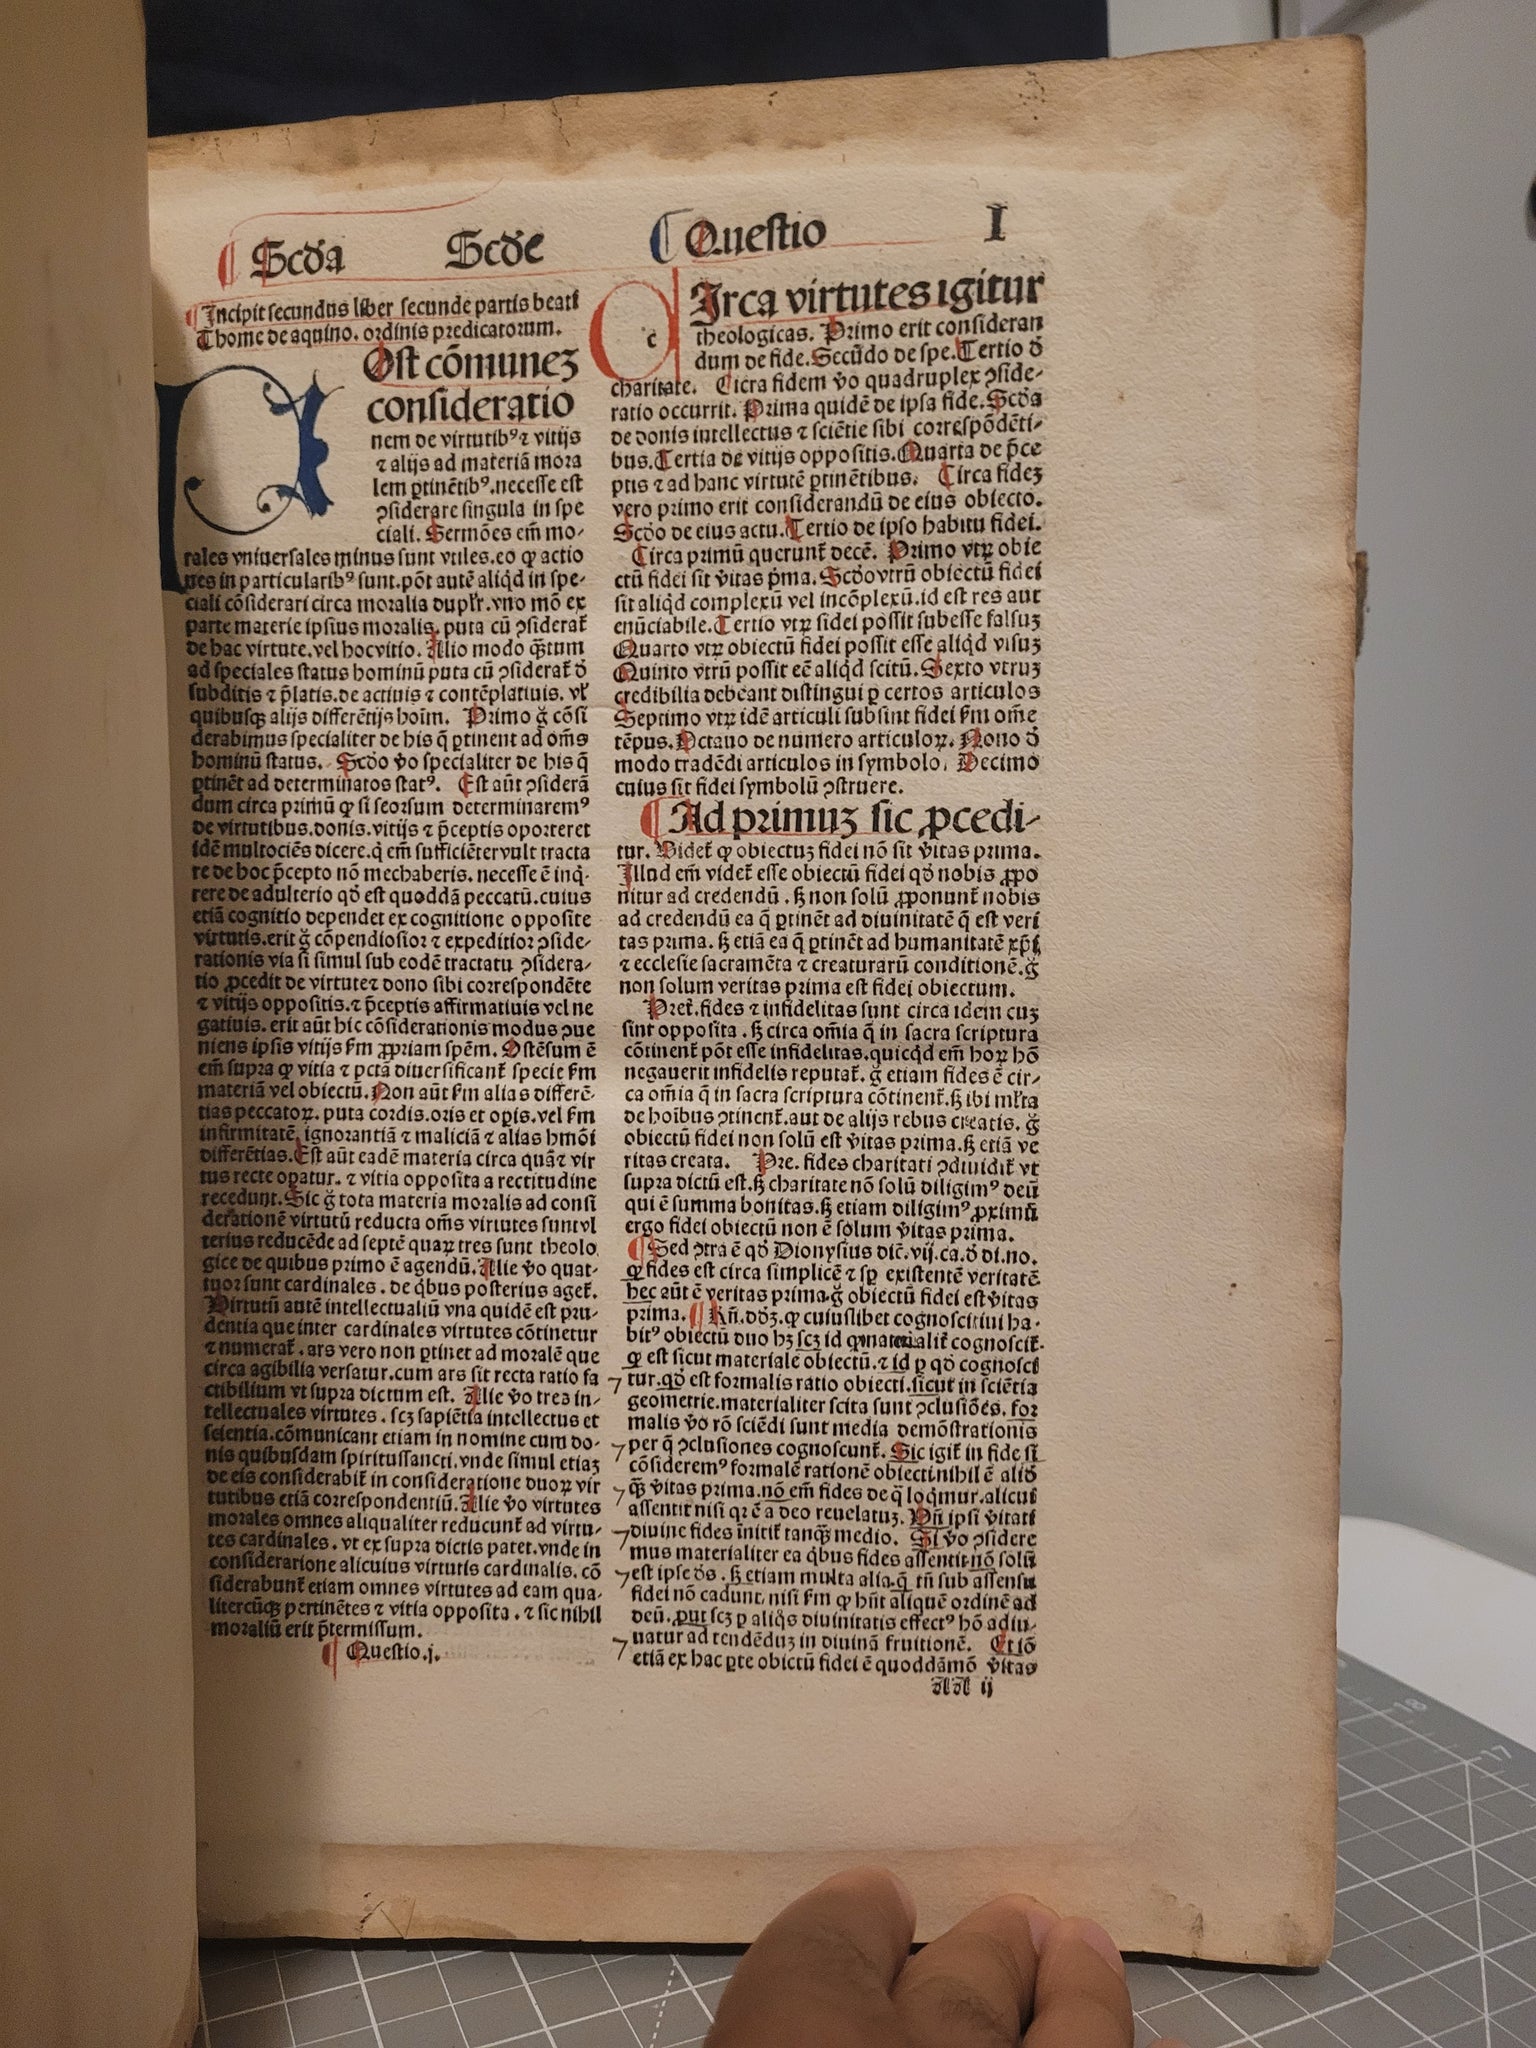 Scďa Scďe Questio I
Incipit secundus liber secunde partis beati
Thome de aquino. ordinis predicatorum.
Ost cōmunez
consideratio
nem de virtutibꝰ ⁊ vitijs
⁊ alijs ad materiā mora
lem ꝑtinētibꝰ.necesse est
ꝯsiderare singula in spe
ciali. Sermōes em̄ mo-
rales vniuersales minus sunt vtiles.eo ꝙ actio
nes in particularibꝰ sunt.pōt autē aliqd in spe-
ciali cōsiderari circa moralia duplr.vno mō ex
parte materie ipsius moralis. puta cū ꝯsiderat̄
de hac virtute.vel hocvitio. Alio modo q̄tum
ad speciales status hominū puta cū ꝯsiderat̄ ď
subditis ⁊ p̄latis.de actiuis ⁊ contēplatiuis. vl̄
quibusqꝫ alijs differētijs hoīm. Primo g̊ cōsi
derabimus specialiter de his q̄ ꝑtinent ad om̄s
hominū status. Scďo v̊o specialiter de his q̄
ꝑtinēt ad determinatos statꝰ. Est aūt ꝯsiderā
dum circa primū ꝙ si seorsum determinaremꝰ
de virtutibus.donis.vitijs ⁊ p̄ceptis oporteret
idē multociēs dicere.q̇ em̄ sufficiētervult tracta
re de hoc p̄cepto nō mechaberis. necesse ē inq̇-
rere de adulterio qď est quoddā peccatū.cuius
etiā cognitio dependet ex cognitione opposite
virtutis.erit g̊ cōpendiosior ⁊ expeditior ꝯside-
rationis via si simul sub eodē tractatu ꝯsidera-
tio ꝓcedit de virtute⁊ dono sibi correspondēte
⁊ vitijs oppositis.⁊ p̄ceptis affirmatiuis vel ne
gatiuis. erit aūt hic cōsiderationis modus ꝯue
niens ipsis vitijs ẜm ꝓpriam spēm. Ostēsum ē
em̄ supra ꝙ vitia ⁊ pctā diuersificant̄ specie ẜm
materiā vel obiectū. Non aūt ẜm alias differē-
tias peccatoꝝ. puta cordis.oris et oꝑis.vel ẜm
infirmitatē. ignorantiā ⁊ maliciā ⁊ alias hmōi
differētias.Est aūt eadē materia circa quā⁊ vir
tus recte oꝑatur. ⁊ vitia opposita a rectitudine
recedunt.Sic g̊ tota materia moralis ad consi
derationē virtutū reducta om̄s virtutes suntvl
terius reducēde ad septē quaꝝ tres sunt theolo
gice de quibus primo ē agendū.Alie v̊o quat-
tuor sunt cardinales. de q̇bus posterius aget̄.
Virtutū autē intellectualiū vna quidē est pru-
dentia que inter cardinales virtutes cōtinetur
⁊ numerat̄. ars vero non ꝑtinet ad moralē que
circa agibilia versatur.cum ars sit recta ratio fa
ctibilium vt supra dictum est. Alie v̊o tres in-
tellectuales virtutes. scꝫ sapiētia intellectus et
scientia.cōmunicant etiam in nomine cum do-
nis quibusdam spiritussancti.vnde simul etiaꝫ
de eis considerabit̄ in consideratione duoꝝ vir
tutibus etiā correspondentiū.Alie v̊o virtutes
morales omnes aliqualiter reducunt̄ ad virtu-
tes cardinales. vt ex supra dictis patet.vnde in
consideratione alicuius virtutis cardinalis. cō
siderabunt̄ etiam omnes virtutes ad eam qua-
litercūqꝫ pertinētes ⁊ vitia opposita. ⁊ sic nihil
moraliū erit p̄termissum.
Questio.j.
c
Irca virtutes igitur
theologicas. Primo erit consideran
dum de fide.Secūdo de spe.Tertio ď
charitate. Cicra fidem v̊o quadruplex ꝯside-
ratio occurrit. Prima quidē de ipsa fide.Scďa
de donis intellectus ⁊ sciētie sibi correspōdēti-
bus.Tertia de vitijs oppositis.Quarta de p̄ce
ptis ⁊ ad hanc virtutē ꝑtinētibus. Circa fideꝫ
vero primo erit considerandū de eius obiecto.
Scďo de eius actu.Tertio de ipso habitu fidei.
Circa primū querunt̄ decē. Primo vtꝝ obie
ctū fidei sit v̊itas p̄ma.Scďovtrū obiectū fidei
sit aliqd complexū vel incōplexū.id est res aut
enūciabile.Tertio vtꝝ fidei possit subesse falsuꝫ
Quarto vtꝝ obiectū fidei possit esse aliqd visuꝫ
Quinto vtrū possit eē aliqd scitū.Sexto vtruꝫ
credibilia debeant distingui ꝑ certos articulos
Septimo vtꝝ idē articuli subsint fidei ẜm om̄e
tēpus.Octauo de numero articuloꝝ. Nono ď
modo tradēdi articulos in symbolo. Decimo
cuius sit fidei symbolū ꝯstruere.
Ad primuꝫ sic ꝓcedi-
tur. Videt̄ ꝙ obiectuꝫ fidei nō sit v̊itas prima.
Illud em̄ videt̄ esse obiectū fidei qď nobis ꝓpo
nitur ad credendū. ſꝫ non solū ꝓponunt̄ nobis
ad credendū ea q̄ ꝑtinēt ad diuinitatē q̄ est veri
tas prima. ſꝫ etiā ea q̄ ꝑtinēt ad humanitatē xp̄i
⁊ ecclesie sacramēta ⁊ creaturarū conditionē.g̊
non solum veritas prima est fidei obiectum.
Pret̄.fides ⁊ infidelitas sunt circa idem cuꝫ
sint opposita. ſꝫ circa om̄ia q̄ in sacra scriptura
cōtinent̄ pōt esse infidelitas.quicqd em̄ hoꝝ hō
negauerit infidelis reputat̄. g̊ etiam fides ē cir-
ca om̄ia q̄ in sacra scriptura cōtinent̄.ſꝫ ibi ml̄ta
de hoībus ꝯtinent̄.aut de alijs rebus creatis. g̊
obiectū fidei non solū est v̊itas prima.ſꝫ etiā ve
ritas creata. Pre. fides charitati ꝯdiuidit̄ vt
supra dictū est.ſꝫ charitate nō solū diligimꝰ deū
qui ē summa bonitas.ſꝫ etiam diligimꝰ ꝓximū
ergo fidei obiectū non ē solum v̊itas prima.
Sed ꝯtra ē qď Dionysius dic̄.vij.ca.ď di.no.
ꝙ fides est circa simplicē ⁊ sꝑ existentē veritatē
hec aūt ē veritas prima.g̊ obiectū fidei est v̊itas
prima. Rn̄.dďꝫ.ꝙ cuiuslibet cognoscitiui ha-
bitꝰ obiectū duo hꝫ scꝫ id qď materialit̄ cognoscit̄.
ꝙ est sicut materiale obiectū.⁊ id ꝑ qď cognosci
tur.qď est formalis ratio obiecti.sicut in sciētia
geometrie.materialiter scita sunt ꝯclusiōes. for
malis v̊o rō sciēdi sunt media demōstrationis
per q̄ ꝯclusiones cognoscunt̄. Sic igit̄ in fide si
cōsideremꝰ formalē rationē obiectinihil ē aliď
qꝫ v̊itas prima.nō em̄ fides de q̄ loq̇mur.alicui
assentit nisi qꝛ ē a deo reuelatuꝫ. Vn̄ ipsi v̊itati
diuine fides īnitit̄ tanqꝫ medio. Si v̊o ꝯsidere
mus materialiter ea q̇bus fides assentit.nō solū
est ipse ďs. ſꝫ etiam multa alia.q̄ tn̄ sub assensu
fidei nō cadunt. nisi ẜm ꝙ hn̄t aliquē ordinē ad
deū. put scꝫ ꝑ aliq̇s diuinitatis effectꝰ hō adiu-
uatur ad tendēduꝫ in diuinā fruitionē. Et iō
etiā ex hac ꝑte obictū fidei ē quoddāmō v̊itas
AA ij